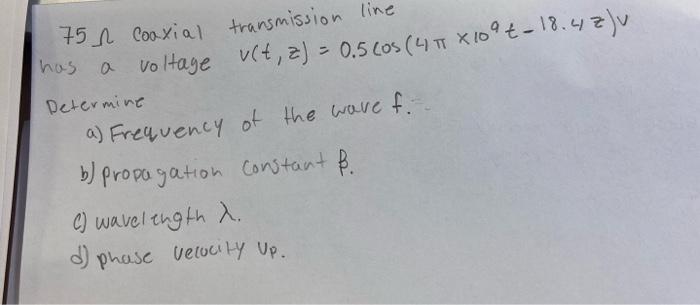 75 Ω Coaxial transmission line
has a voltage v(t, z) = 0.5 cos (4π × 10⁹ t - 18.4 z) v
Determine
a) Frequency of the wave f.
b) propagation constant β.
c) wavelength λ.
d) phase velocity Up.